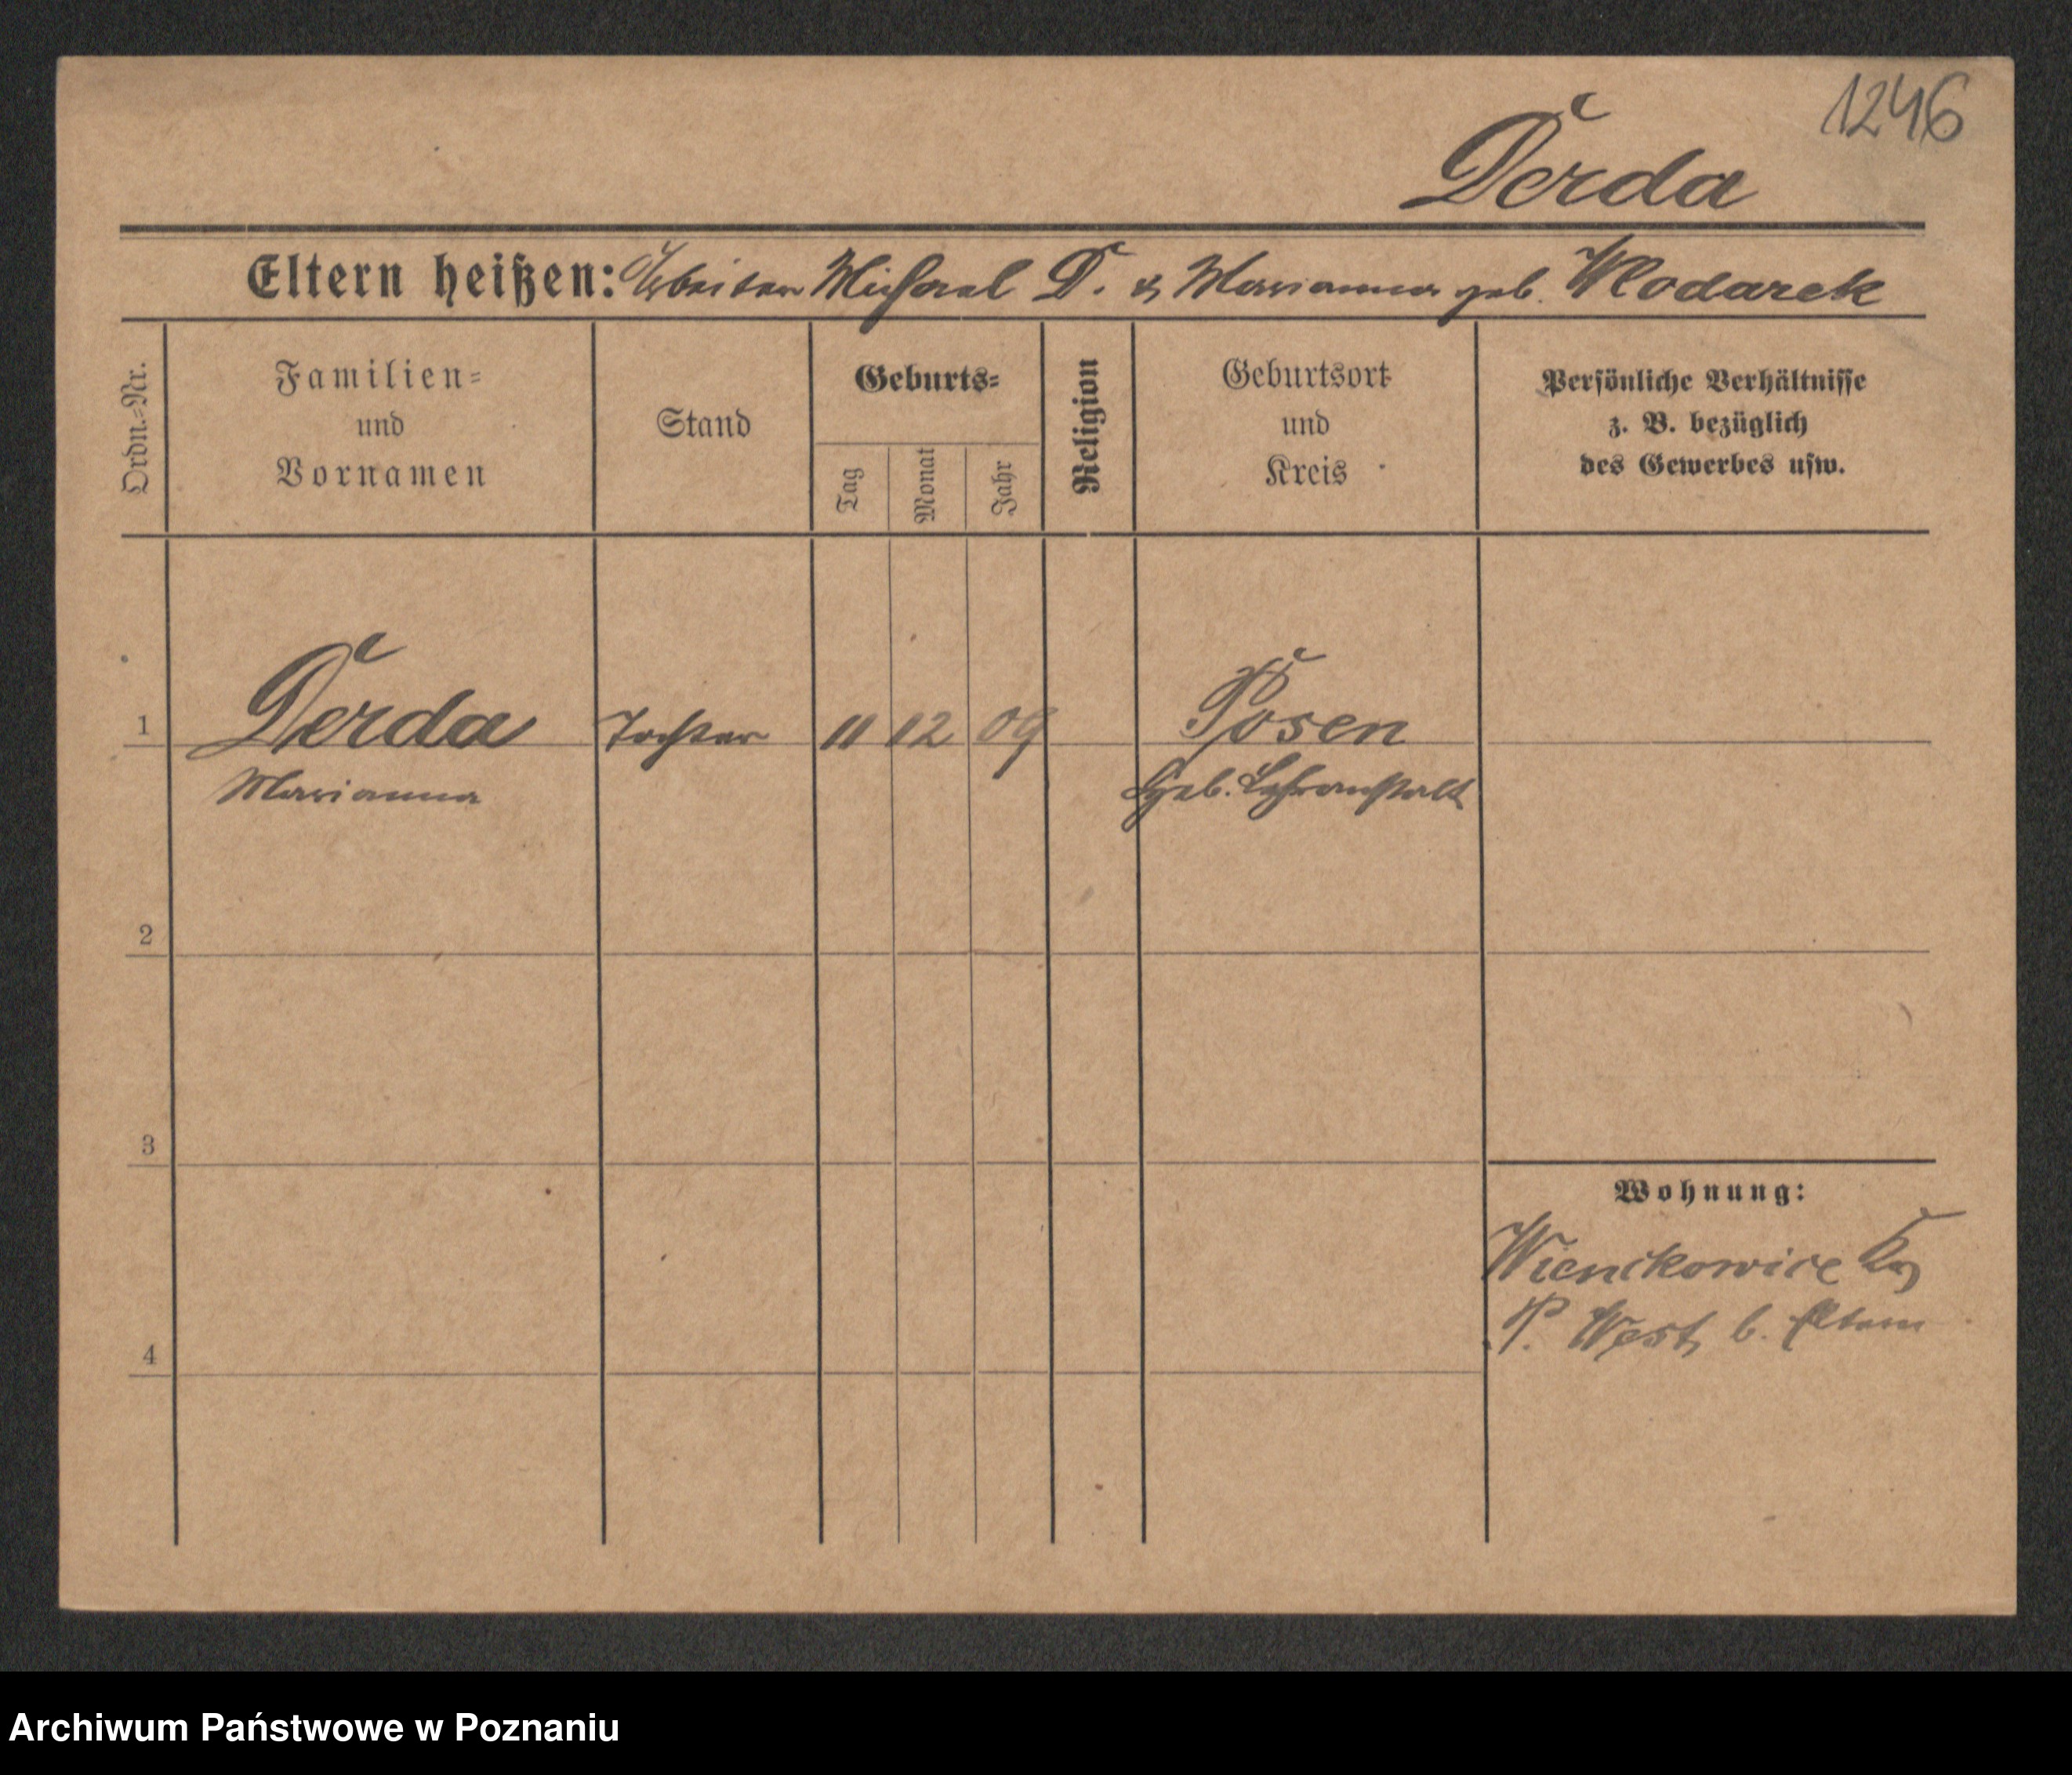 1246
Derda
Eltern heißen: Arbeiter Michael D. & Marianna geb. Wlodarek
Ordn.=Nr.
Familien=
und
Vornamen
Stand
Geburts=
Tag
Monat
Jahr
Religion
Geburtsort
und
Kreis
Persönliche Verhältnisse
z. B. bezüglich
des Gewerbes usw.
1 Derda Tochter 11 12 09 Posen
Marianna Hgeb. Lehranstalt
2
3
4
Wohnung:
Wienckowice
P. West b. Eltern
Archiwum Państwowe w Poznaniu